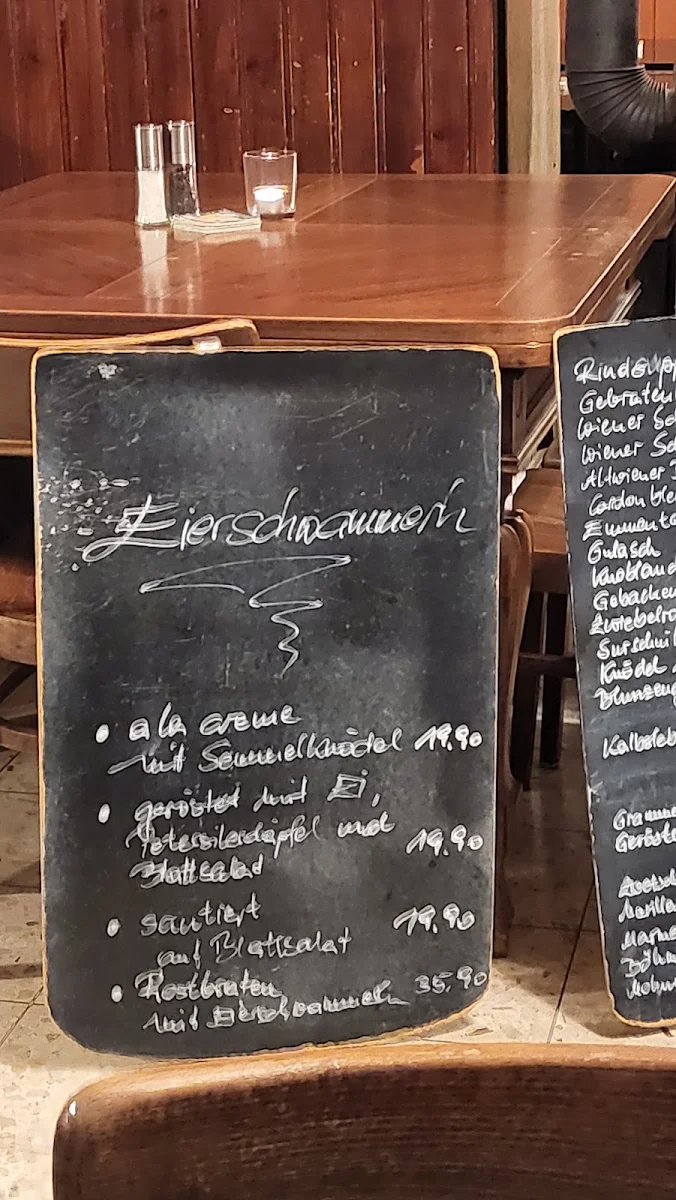 Eierschwammerln
• a la creme
mit Semmelknödel 19,90
• geröstet mit Ei,
Petersilerdäpfel und
Blattsalat 19,90
• sautiert 19,90
auf Blattsalat
• Rostbraten 35,90
mit Eierschwammerln
Gebraten
Wiener Sc
Wiener Sc
Altwiener
Cordon ble
Emmenta
Gulasch
Knoblauc
Gebacken
Zwiebelro
Surschni
Knödel
Blunzeng
Kalbsleb
Gramme
Geröste
Marille
Marmo
Böhm
Mohn